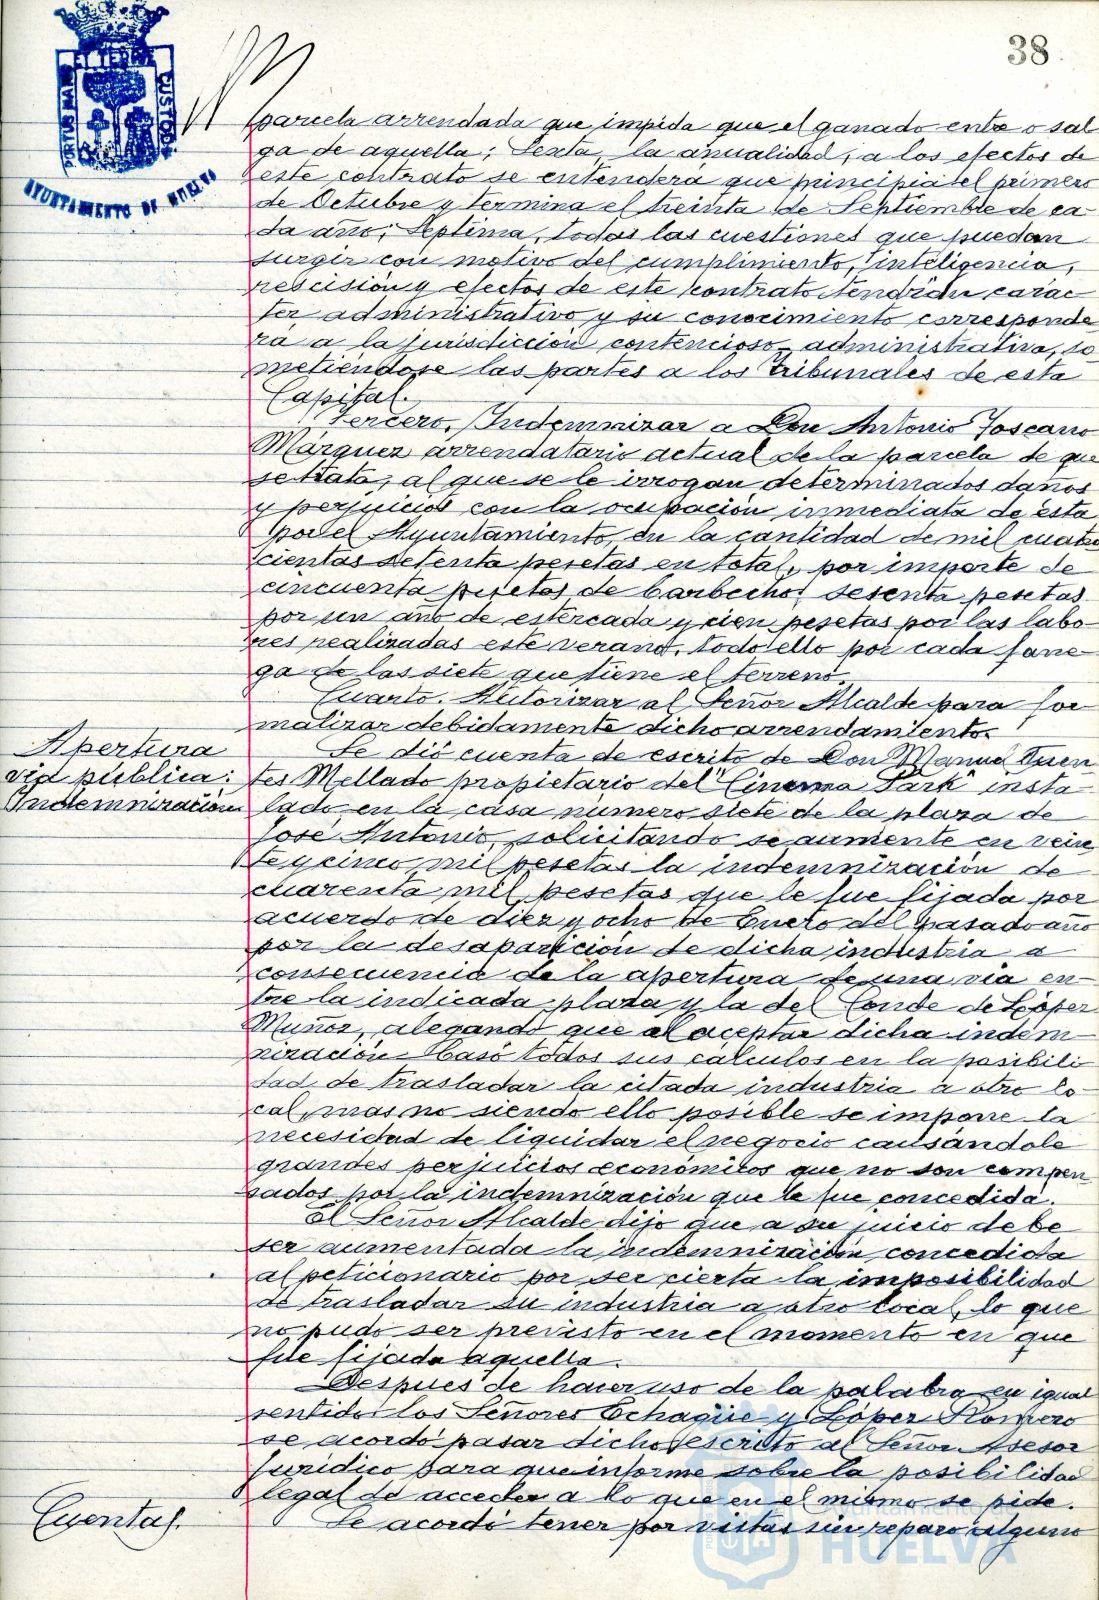 38
PORTUS MARIS ET TERRAE CUSTODIA
AYUNTAMIENTO DE HUELVA
parcela arrendada que impida que el ganado entre o sal-
ga de aquella; Sexta, la anualidad, a los efectos de
este contrato se entenderá que principia el primero
de Octubre y termina el treinta de Septiembre de ca-
da año; Septima, todas las cuestiones que puedan
surgir con motivo del cumplimiento, inteligencia,
rescisión y efectos de este contrato tendrán carac-
ter administrativo y su conocimiento corresponde-
rá a la jurisdicción contencioso-administrativa, so-
metiéndose las partes a los Tribunales de esta
Capital.
Tercero. Indemnizar a Don Antonio Toscano
Márquez arrendatario actual de la parcela de que
se trata, al que se le irrogan determinados daños
y perjuicios con la ocupación inmediata de esta
por el Ayuntamiento, en la cantidad de mil cuatro
cientas setenta pesetas en total, por importe de
cincuenta pesetas de barbecho, sesenta pesetas
por un año de estercada y cien pesetas por las labo-
res realizadas este verano, todo ello por cada fane-
ga de las siete que tiene el terreno.
Cuarto. Autorizar al Señor Alcalde para for-
malizar debidamente dicho arrendamiento.
Apertura
vía pública:
Indemnización
Se dió cuenta de escrito de Don Manuel Fuen-
tes Mellado propietario del "Cinema Park" insta-
lado en la casa número siete de la plaza de
José Antonio, solicitando se aumente en vein-
te y cinco mil pesetas la indemnización de
cuarenta mil pesetas que le fue fijada por
acuerdo de diez y ocho de Enero del pasado año
por la desaparición de dicha industria a
consecuencia de la apertura de una vía en-
tre la indicada plaza y la del Conde de López
Muñoz, alegando que al aceptar dicha indem-
nización basó todos sus cálculos en la posibili-
dad de trasladar la citada industria a otro lo-
cal, mas no siendo ello posible se impone la
necesidad de liquidar el negocio causándole
grandes perjuicios económicos que no son compen-
sados por la indemnización que le fue concedida.
El Señor Alcalde dijo que a su juicio debe
ser aumentada la indemnización concedida
al peticionario por ser cierta la imposibilidad
de trasladar su industria a otro local, lo que
no pudo ser previsto en el momento en que
fue fijada aquella.
Después de hacer uso de la palabra en igual
sentido los Señores Echagüe y López Romero
se acordó pasar dicho escrito al Señor Asesor
Jurídico para que informe sobre la posibilidad
legal de acceder a lo que en el mismo se pide.
Cuentas.
Se acordó tener por vistas sin reparo alguno
Ayuntamiento de
HUELVA